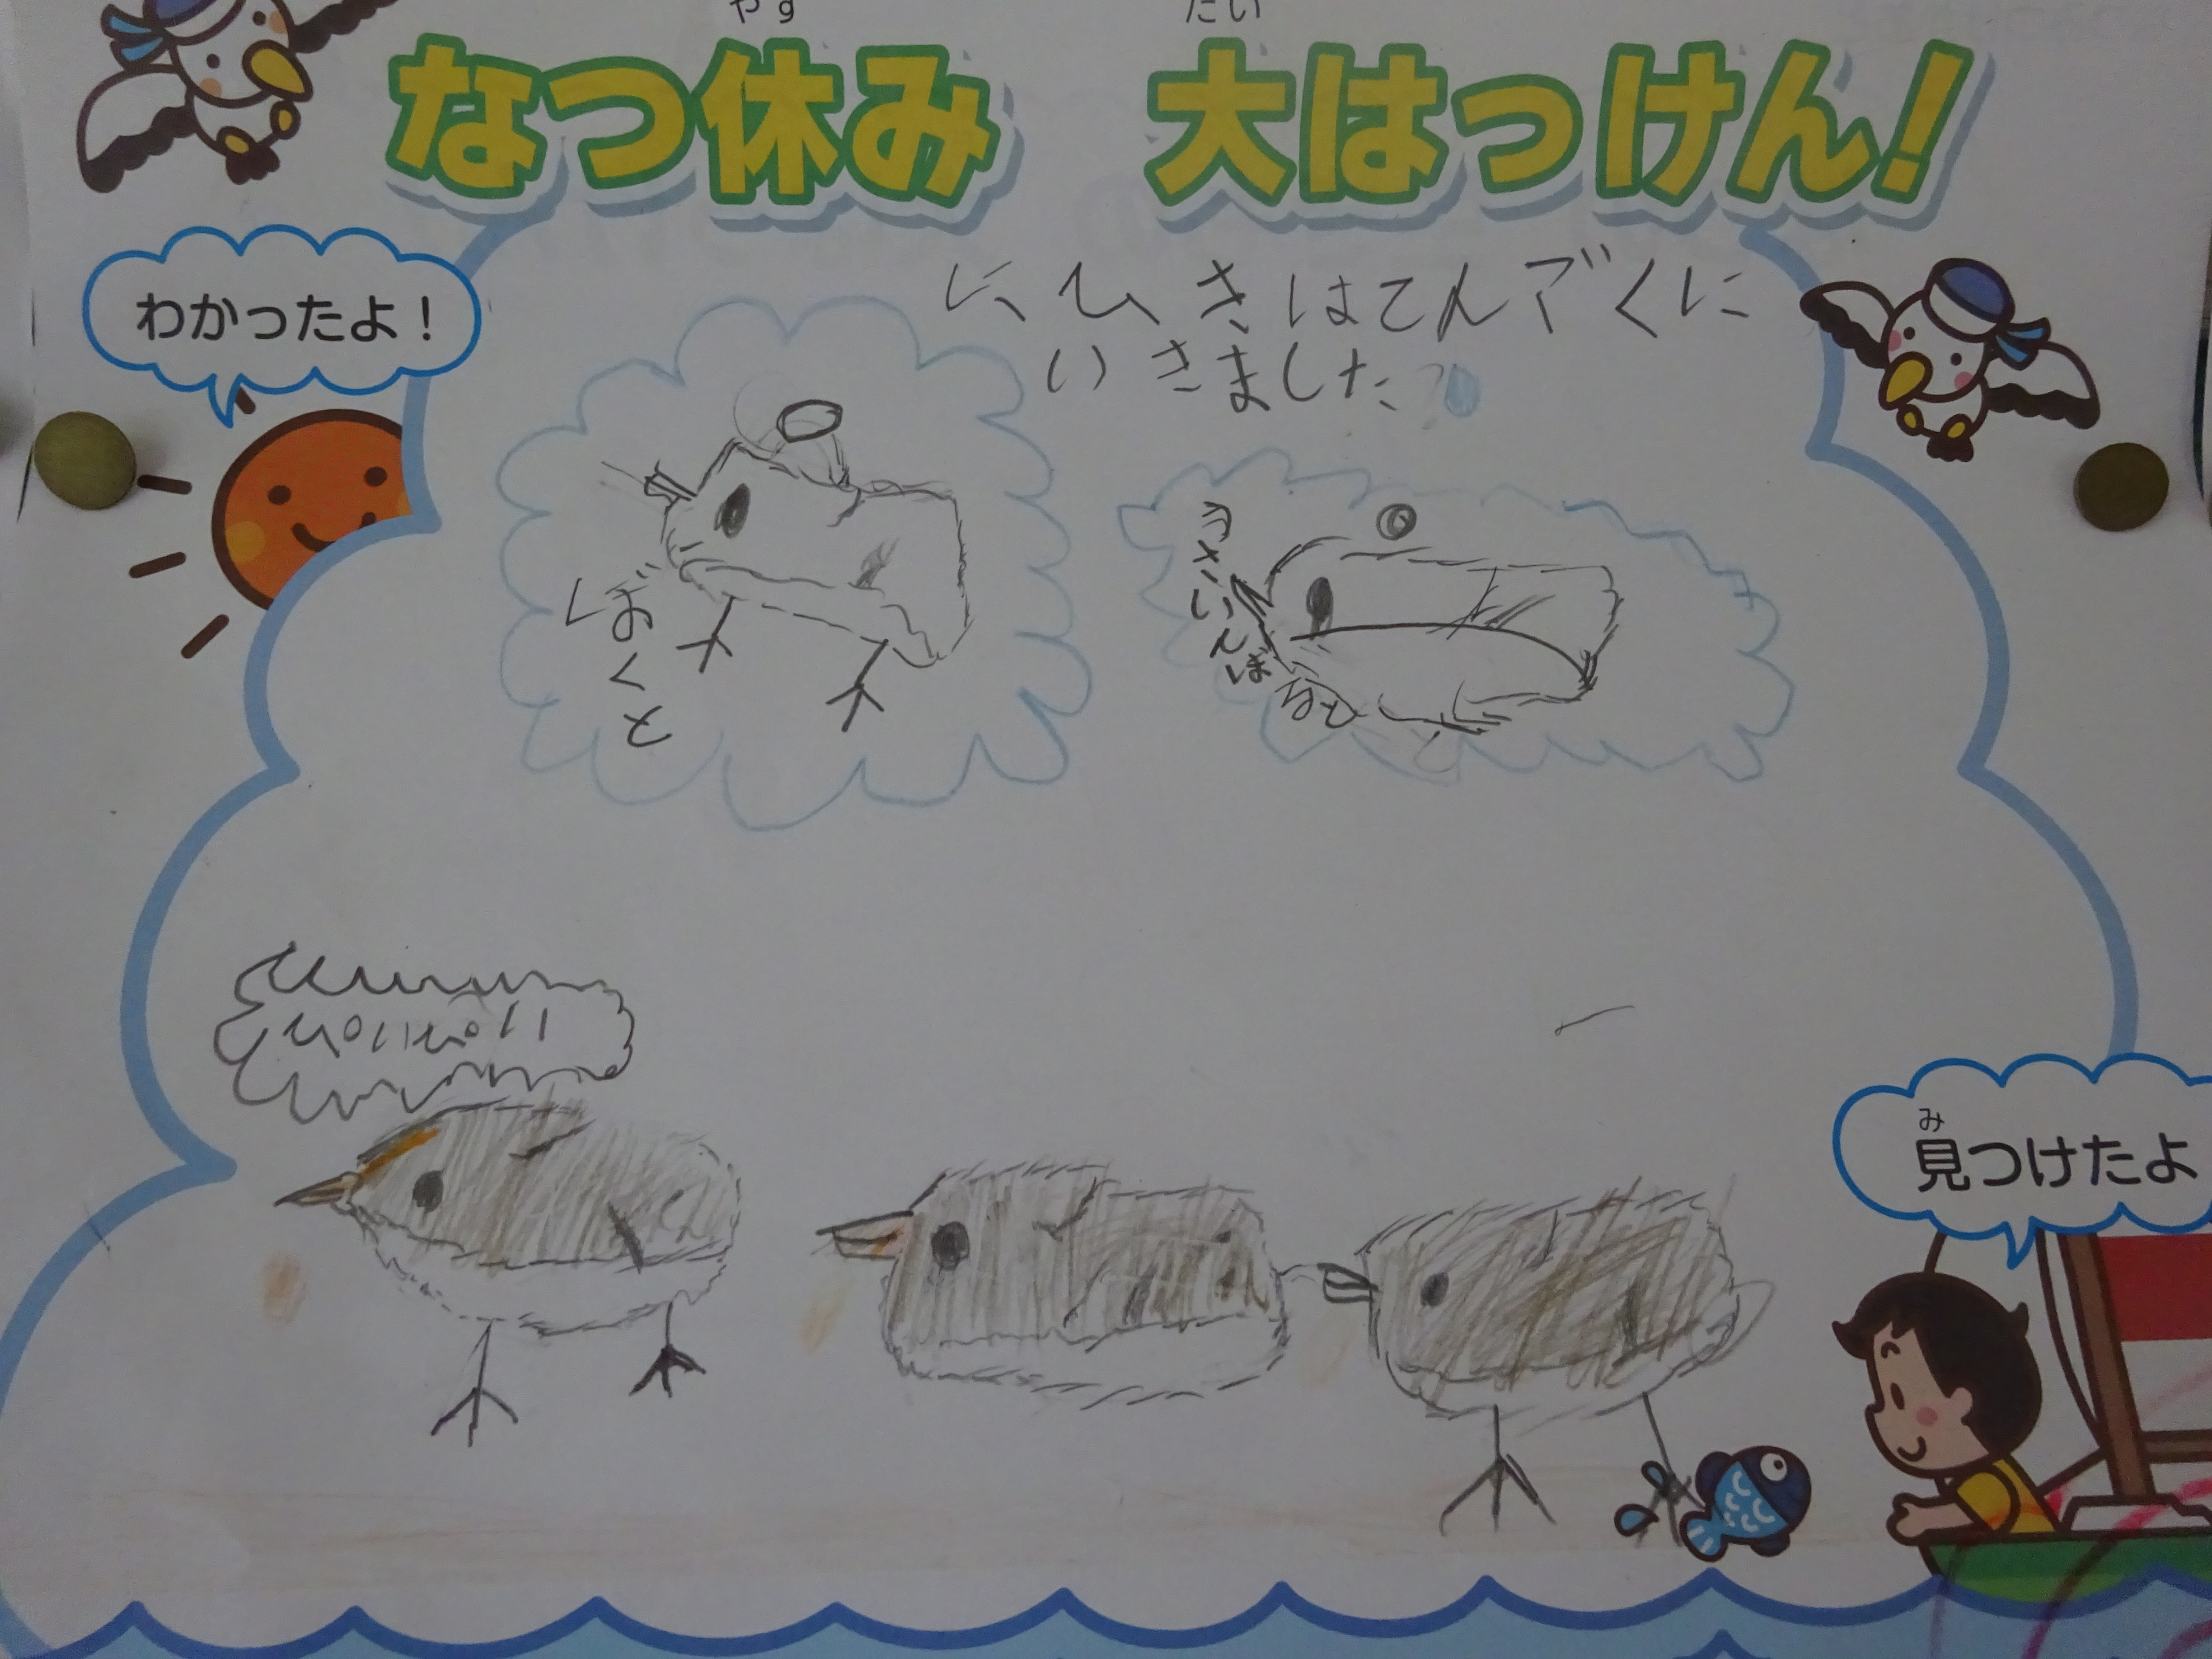 なつ休み 大はっけん!
わかったよ!
にひきはてんごくに
いきました
ぼくと
ぴいぴい
み
見つけたよ